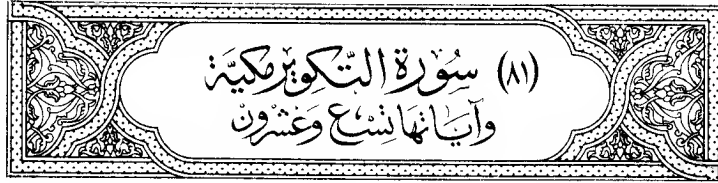 (٨١) سُوْرَة التَّكويْر مَكيَّة
وَآيَاتهَا تِسْع وَعشْرُونْ